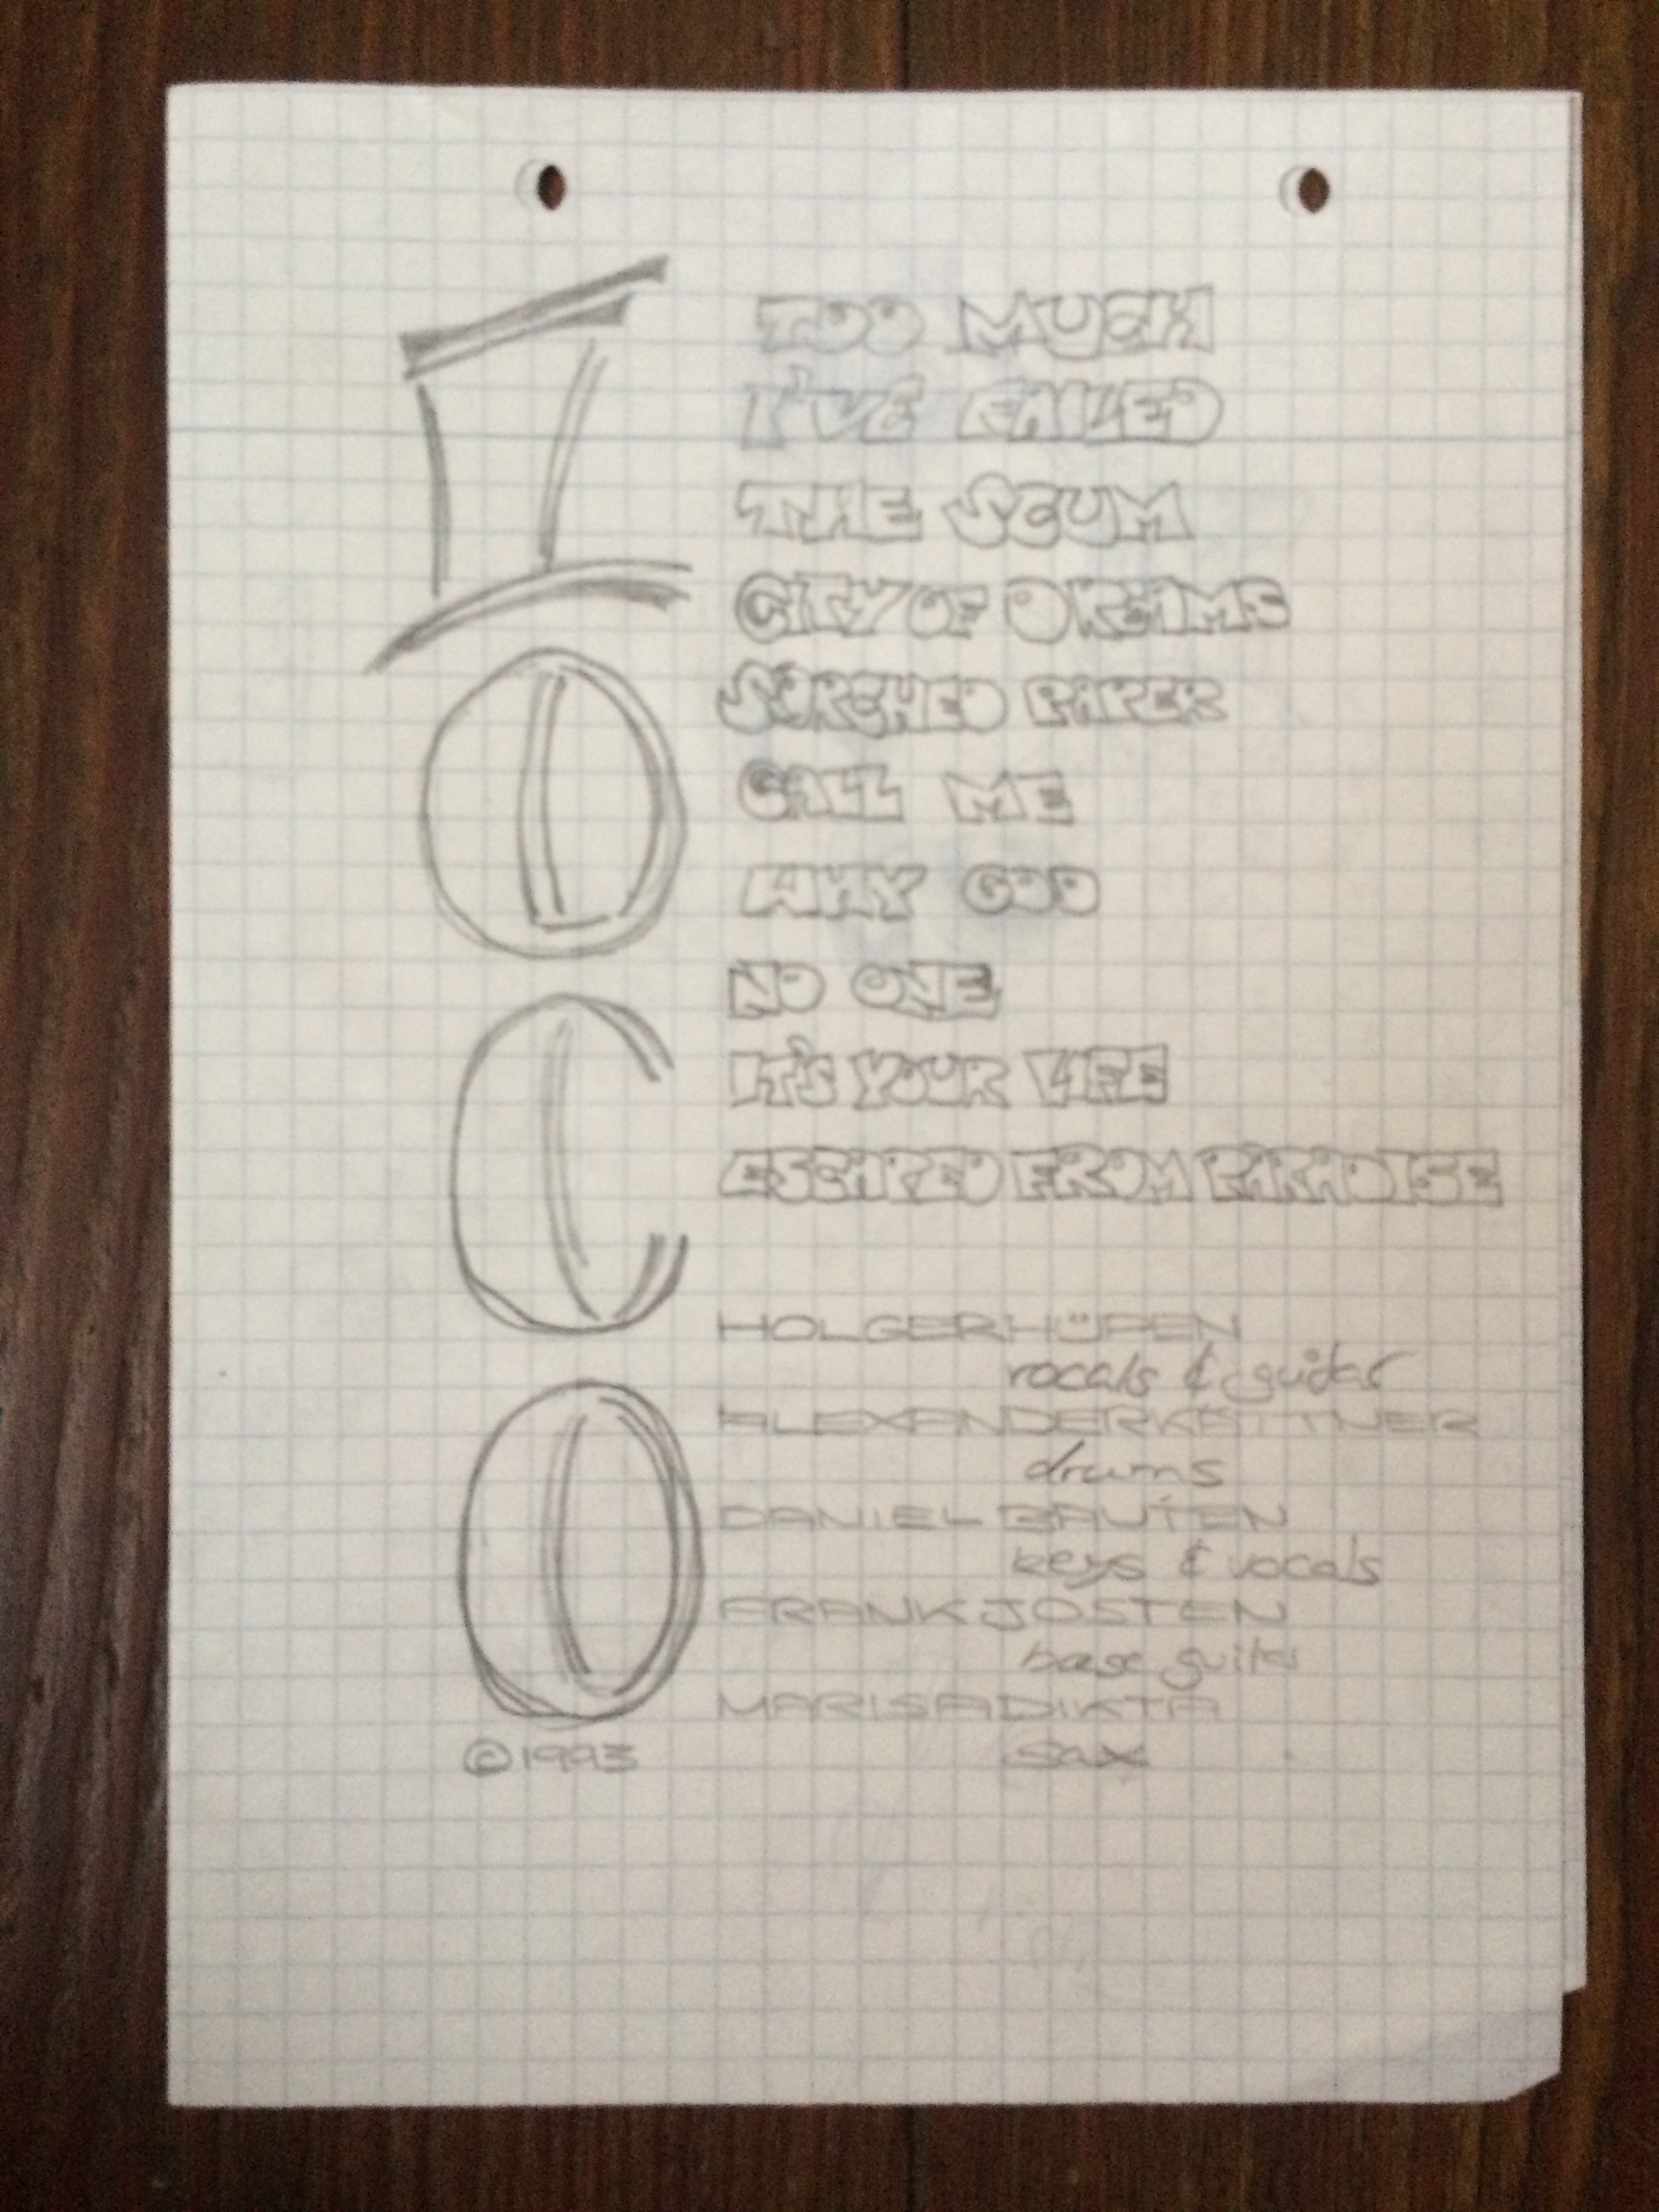 TOO MUCH
I'VE FAILED
THE SCUM
CITY OF DREAMS
SORCHED PAPER
CALL ME
WHY GOD
NO ONE
IT'S YOUR LIFE
ESCAPED FROM PARADISE
HOLGER HÜPEN
vocals & guitar
ALEXANDER KÄTTNER
drums
DANIEL BAUTEN
keys & vocals
FRANK JOSTEN
base guitar
MARISA DIKTA
©1993 sax